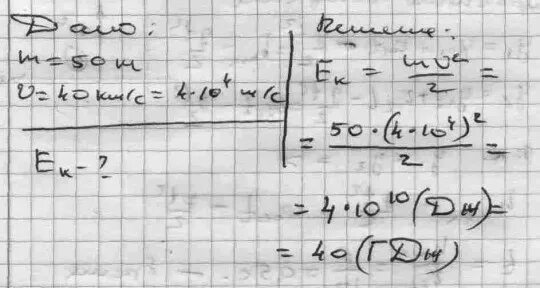 Дано:
m = 50 т
v = 40 км/с = 4·10⁴ м/с
Eк - ?
Решение:
Eк = mv²/2 =
= 50·(4·10⁴)²/2 =
= 4·10¹⁰ (Дж) =
= 40 (ГДж)